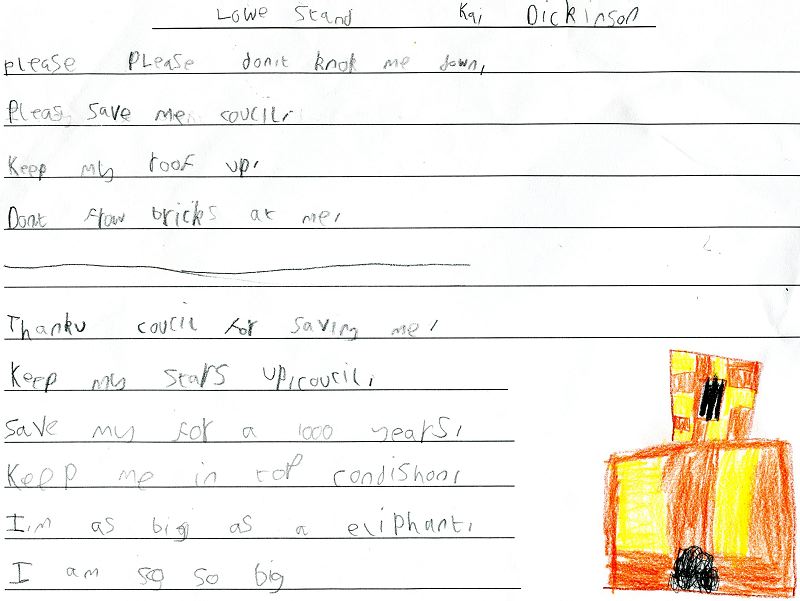 Lowe Stand Kai Dickinson
please PLease don,t knok me down,
Pleas save me coucil,
Keep my roof up,
Dont flow bricks at me,
Thanku coucil for saving me,
Keep my stars up,coucil,
Save my for a 1000 years,
Keep me in top condishon,
I,m as big as a eliphant,
I am so so big